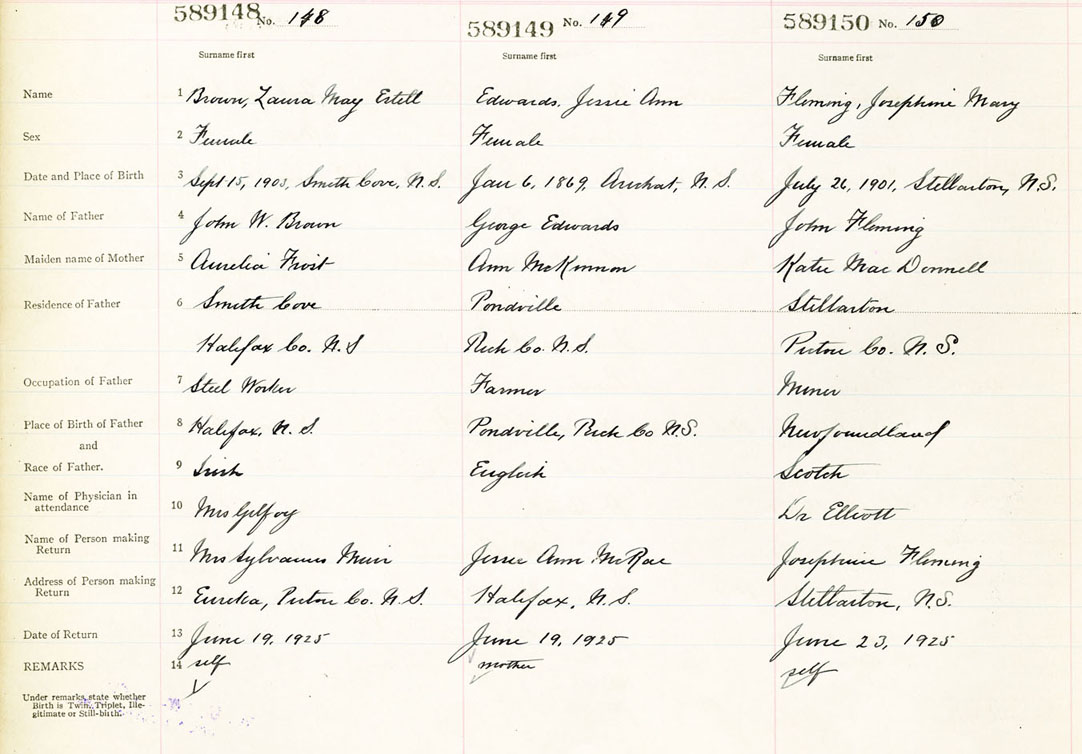 589148 No. 148 589149 No. 149 589150 No. 150
Surname first Surname first Surname first
Name 1 Brown, Laura May Estell Edwards, Jessie Ann Fleming, Josephine Mary
Sex 2 Female Female Female
Date and Place of Birth 3 Sept 15, 1903, Smith Cove, N.S. Jan 6, 1869, Arichat, N.S. July 26, 1901, Stellarton, N.S.
Name of Father 4 John W. Brown George Edwards John Fleming
Maiden name of Mother 5 Aurelia Frost Ann McKinnon Katie Mac Donnell
Residence of Father 6 Smith Cove Pondville Stellarton
Halifax Co. N.S Rich Co. N.S. Pictou Co. N.S.
Occupation of Father 7 Steel Worker Farmer Miner
Place of Birth of Father 8 Halifax, N.S. Pondville, Rich Co N.S. Newfoundland
and
Race of Father. 9 Irish English Scotch
Name of Physician in
attendance 10 Mrs Gilfoy Dr Elliott
Name of Person making
Return 11 Mrs Sylvanus Muir Jessie Ann McRae Josephine Fleming
Address of Person making
Return 12 Eureka, Pictou Co. N.S. Halifax, N.S. Stellarton, N.S.
Date of Return 13 June 19, 1925 June 19, 1925 June 23, 1925
REMARKS 14 self mother self
Under remarks state whether
Birth is Twin, Triplet, Ille-
gitimate or Still-birth.